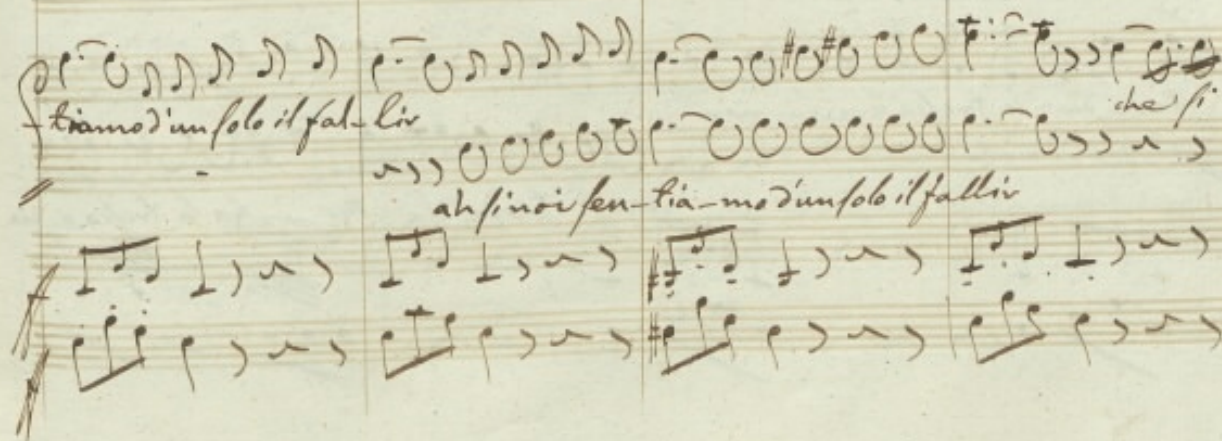 -tiamo d'un solo il fal-lir
che si
ah si noi sen-tia-mo d'un solo il fallir